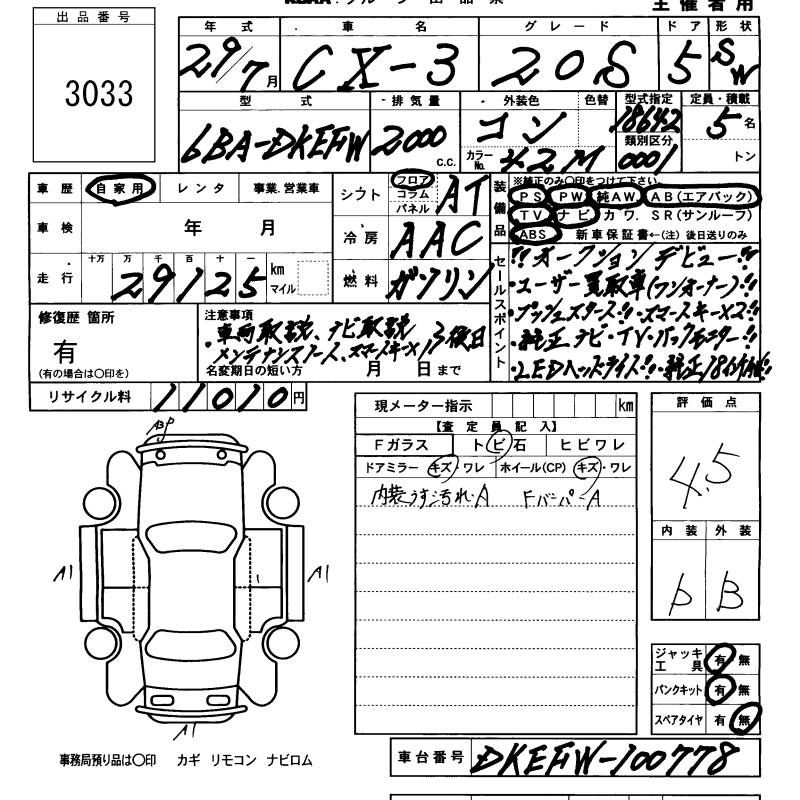 主催者用
出品番号
3033
年式 車名 グレード ドア 形状
29/7月 CX-3 20S 5 SW
型式 排気量 外装色 色替 型式指定 定員・積載
6BA-DKEFW 2000c.c. コン 18642 5名
類別区分
カラーNo. 42M 0001 トン
車歴 自家用 レンタ 事業.営業車
シフト フロア コラム パネル AT
装備品 ※純正のみ〇印をつけて下さい。
PS PW 純AW AB(エアバック)
TV ナビ カワ. SR(サンルーフ)
ABS 新車保証書←(注)後日送りのみ
車検 年 月
冷房 AAC
走行 十万 万 千 百 十 一
29125 km マイル
燃料 ガソリン
セールスポイント
!!オークションデビュー!!
・ユーザー買取車(ワンオーナー)!!
・プッシュスタート!!・スマートキーX2!!
・純正ナビ・TV・バックモニター!!
・LEDヘッドライト!!・純正18インチAW!!
修復歴 箇所
有
(有の場合は〇印を)
注意事項
・車両取説、ナビ取説
メンテナンスノート、スマートキーX1 後日
名変期日の短い方 月 日まで
リサイクル料 11010円
現メーター指示 km
【査定員記入】
Fガラス トビ石 ヒビワレ
ドアミラー キズ・ワレ ホイール(CP) キズ・ワレ
内装うす汚れ・A FバーパーA
評価点
4.5
内装 外装
b B
A1 A1
A1
ジャッキ工具 有 無
パンクキット 有 無
スペアタイヤ 有 無
事務局預り品は〇印 カギ リモコン ナビロム
車台番号 DKEFW-100778